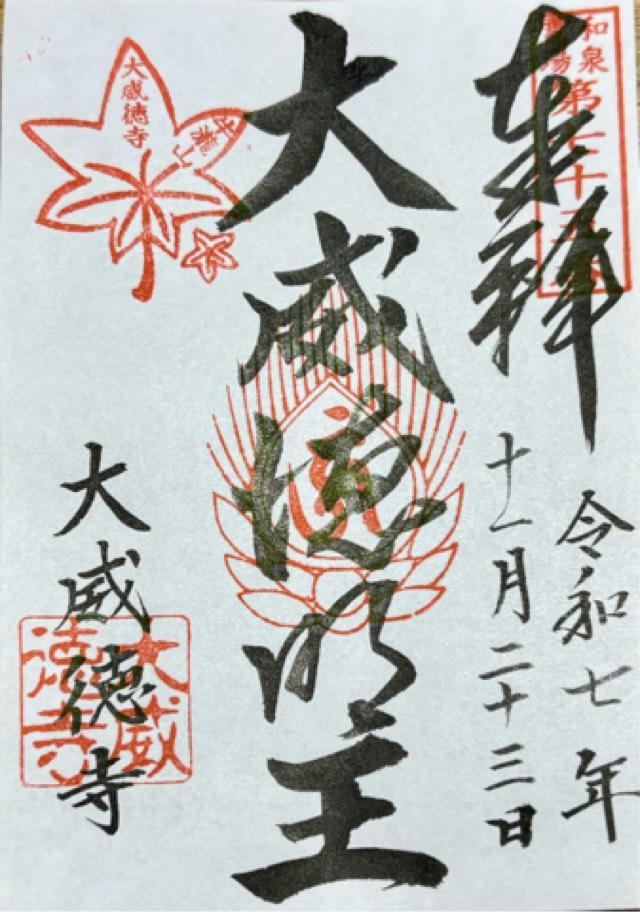 奉拝
令和七年
十一月二十三日
大威徳明王
大威徳寺
和泉
大威徳寺
牛瀧山
大威
徳寺